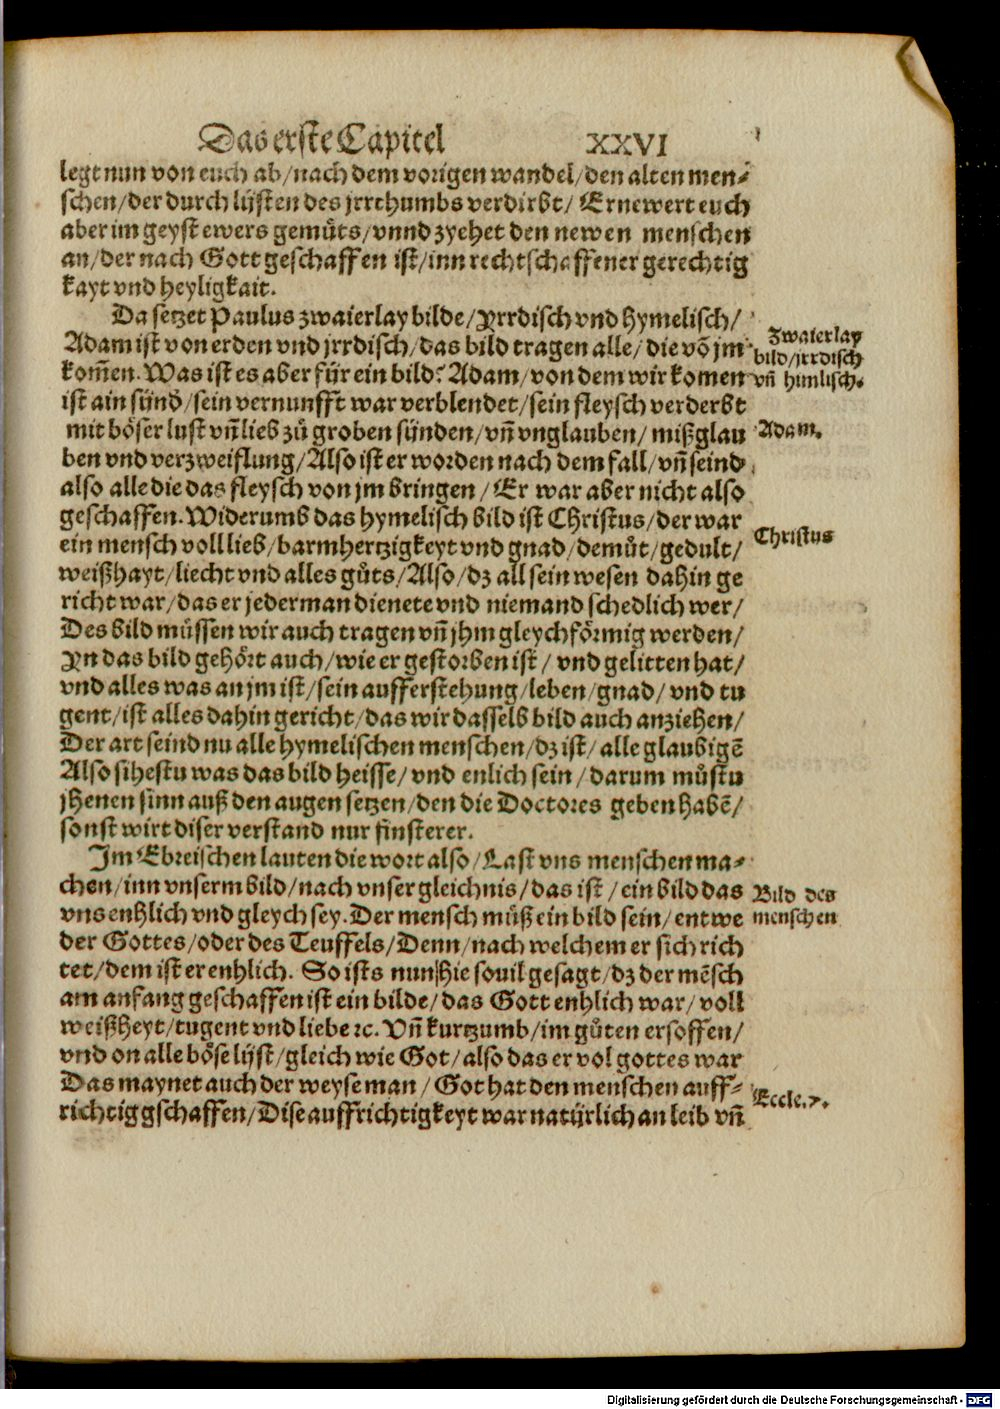 Das erste Capitel XXVI
legt nun von euch ab/nach dem vorigen wandel/den alten men-
schen/der durch lüsten des jrrthumbs verdirbt/ Ernewert euch
aber im geyst ewers gemůts/vnnd zyehet den newen menschen
an/der nach Gott geschaffen ist/inn rechtschaffener gerechtig
kayt vnd heyligkait.
Da setzet Paulus zwaierlay bilde/Yrrdisch vnd hymelisch/
Zwaierlay
Adam ist von erden vnd jrrdisch/das bild tragen alle/die vō jm
bild/jrrdisch
kom̄en. Was ist es aber für ein bild? Adam/von dem wir komen
vn̄ himlisch.
ist ain sünd/sein vernunfft war verblendet/sein fleysch verderbt
mit böser lust vn̄ lieb zů groben sünden/vn̄ vnglauben/mißglau
Adam.
ben vnd verzweiflung/Also ist er worden nach dem fall/vn̄ seind
also alle die das fleysch von jm bringen/Er war aber nicht also
geschaffen. Widerumb das hymelisch bild ist Christus/der war
Christus
ein mensch voll lieb/barmhertzigkeyt vnd gnad/demůt/gedult/
weißhayt/liecht vnd alles gůts/Also/dz all sein wesen dahin ge
richt war/das er jederman dienete vnd niemand schedlich wer/
Des bild müssen wir auch tragen vn̄ jhm gleychförmig werden/
Yn das bild gehört auch/wie er gestorben ist/ vnd gelitten hat/
vnd alles was an jm ist/sein aufferstehung/leben/gnad/ vnd tu
gent/ist alles dahin gericht/das wir dasselb bild auch anziehen/
Der art seind nu alle hymelischen menschen/dz ist/ alle glaubigē
Also sihestu was das bild heisse/vnd enlich sein/darum můstu
jhenen sinn auß den augen setzen/den die Doctores geben habē/
sonst wirt diser verstand nur finsterer.
Im Ebreischen lauten die wort also/Last vns menschen ma-
chen/inn vnserm bild/nach vnser gleichnis/das ist/ein bild das
Bild des
vns enhlich vnd gleych sey. Der mensch můß ein bild sein/entwe
menschen
der Gottes/oder des Teuffels/Denn/nach welchem er sich rich
tet/dem ist er enhlich. So ists nun hie souil gesagt/dz der mēsch
am anfang geschaffen ist ein bilde/das Gott enhlich war/voll
weißheyt/tugent vnd liebe ꝛc. Vn̄ kurtzumb/im gůten ersoffen/
vnd on alle böse lüst/gleich wie Got/also das er vol gottes war
Das maynet auch der weyse man/Got hat den menschen auff-
Eccle.7.
richtig gschaffen/Dise auffrichtigkeyt war natürlich an leib vn̄
Digitalisierung gefördert durch die Deutsche Forschungsgemeinschaft - DFG